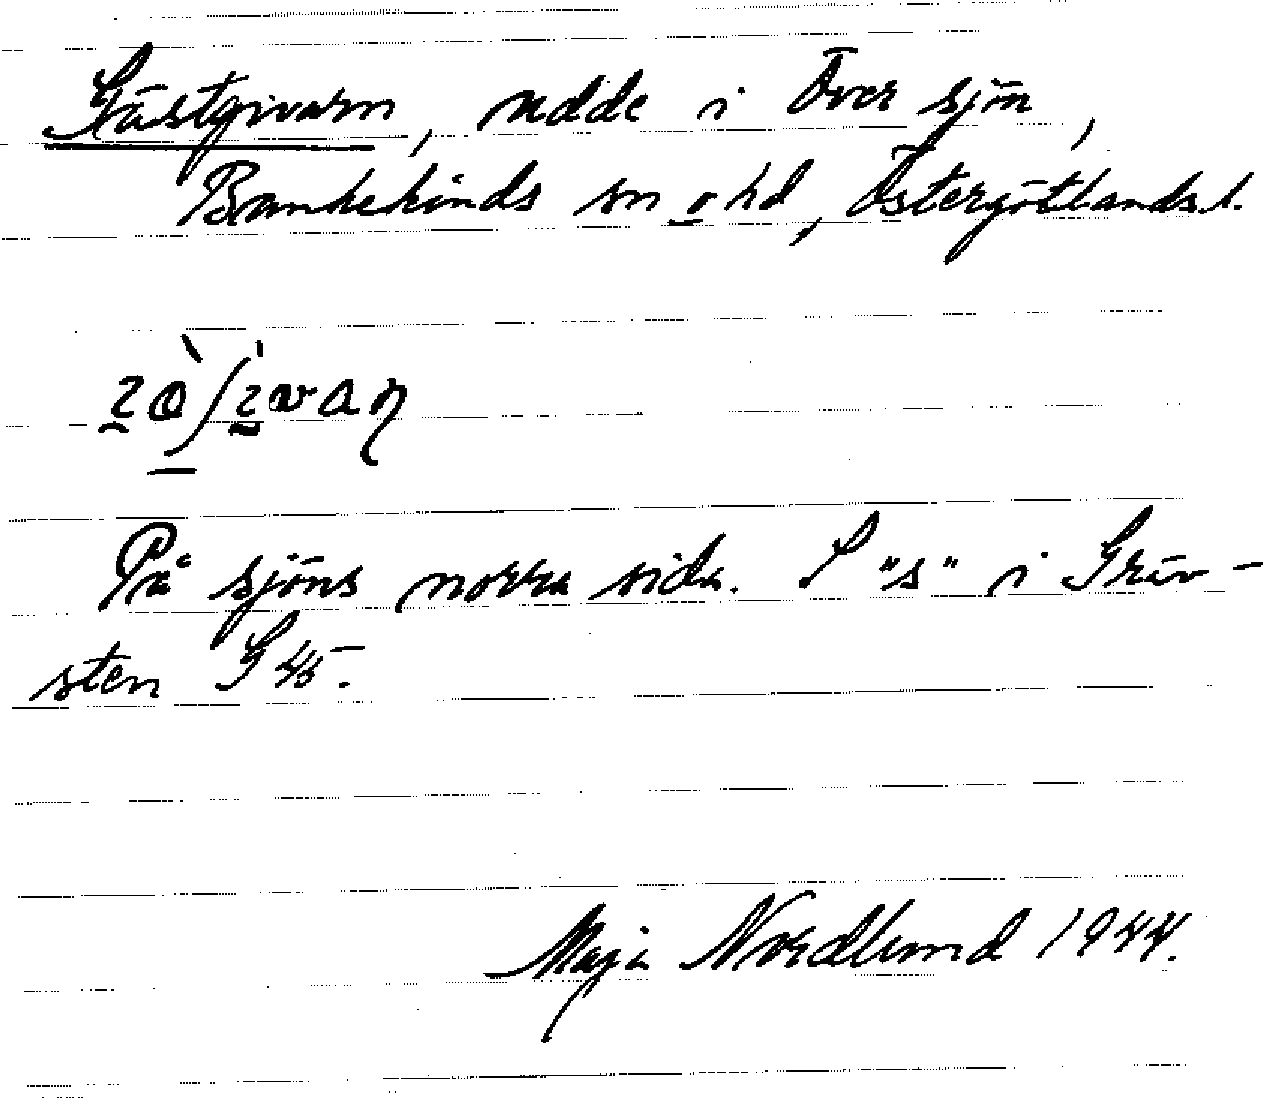 Gästgivarn, udde i Över sjön,
Bankekinds sn o hd, Östergötlands l.
På sjöns norra sida. L "s" i Gräv-
sten G 45.
Maja Nordlund 1944.